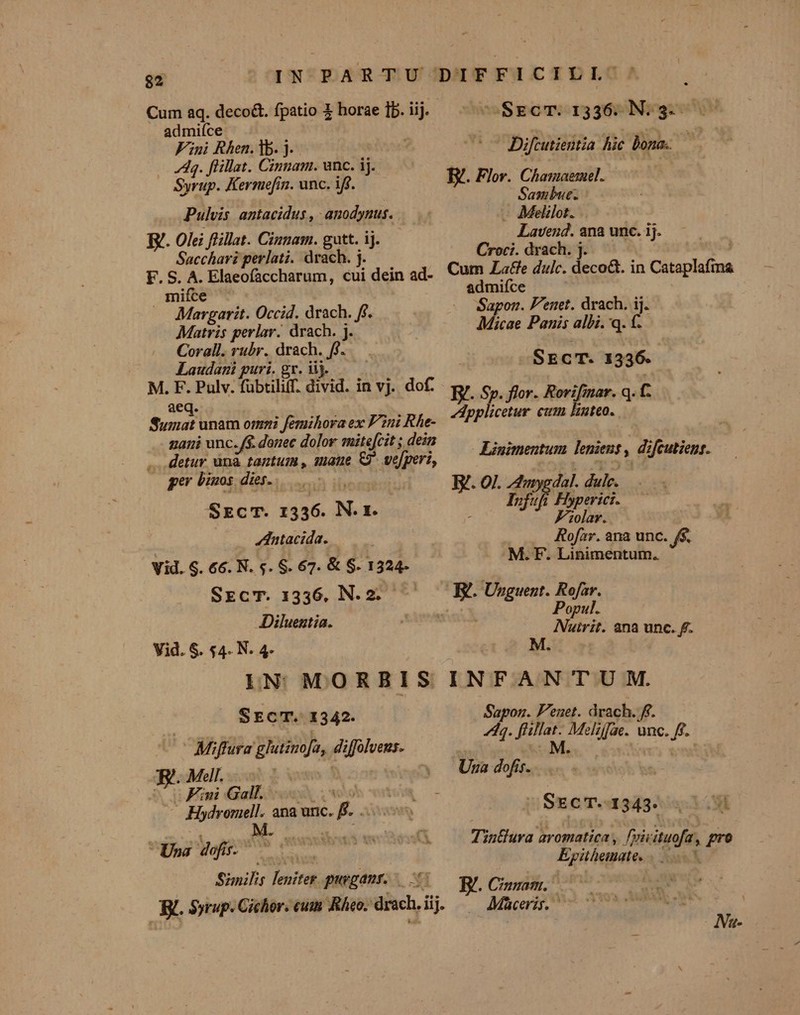 82 IN PARTU DIFFICILI
Cum aq. decoct. ſpatio ¾ horae ℔. iij.
admiſce
Vini Rhen. ℔. j.
Aq. ſtillat. Cinnam. unc. ij.
Syrup. Kermeſin. unc. iſs.
Pulvis antacidus, anodynus.
℞. Olei ſtillat. Cinnam. gutt. ij.
Sacchari perlati. drach. j.
F. S. A. Elaeoſaccharum, cui dein ad-
miſce
Margarit. Occid. drach. ſs.
Matris perlar. drach. j.
Corall. rubr. drach. ſs.
Laudani puri. gr. iij.
M. F. Pulv. ſubtiliſſ. divid. in vj. doſ.
aeq.
Sumat unam omni ſemihora ex Vini Rhe-
nani unc. ſs. donec dolor miteſcit; dein
detur una tantum, mane & veſperi,
per binos dies.
SECT. 1336. N. 1.
Antacida.
Vid. §. 66. N. 5. §. 67. & §. 1324.
SECT. 1336, N. 2.
Diluentia.
Vid. §. 54. N. 4.
SECT. 1336. N. 3.
Diſcutientia hic bona.
℞. Flor. Chamaemel.
Sambuc.
Melilot.
Lavend. ana unc. ij.
Croci. drach. j.
Cum Lacte dulc. decoct. in Cataplaſma
admiſce
Sapon. Venet. drach. ij.
Micae Panis albi. q. ſ.
SECT. 1336.
℞. Sp. flor. Roriſmar. q. ſ.
Applicetur cum linteo.
Linimentum leniens, diſcutiens.
℞. Ol. Amygdal. dulc.
Infuſi Hyperici.
Violar.
Roſar. ana unc. ſs.
M. F. Linimentum.
℞. Unguent. Roſar.
Popul.
Nutrit. ana unc. ſs.
M.
IN MORBIS INFANTUM.
SECT. 1342.
Miſſura glutinoſa, diſſolvens.
℞. Mell.
Vini Gall.
Hydromell. ana unc. ſs.
M.
Una doſis.
Similis leniter purgans.
℞. Syrup. Cichor. cum Rheo. drach. iij.
Sapon. Venet. drach. ſs.
Aq. ſtillat. Meliſſae. unc. ſs.
M.
Una doſis.
SECT. 1343.
Tinctura aromatica, ſpirituoſa, pro
Epithemate.
℞. Cinnam.
Maceris.
Nu-